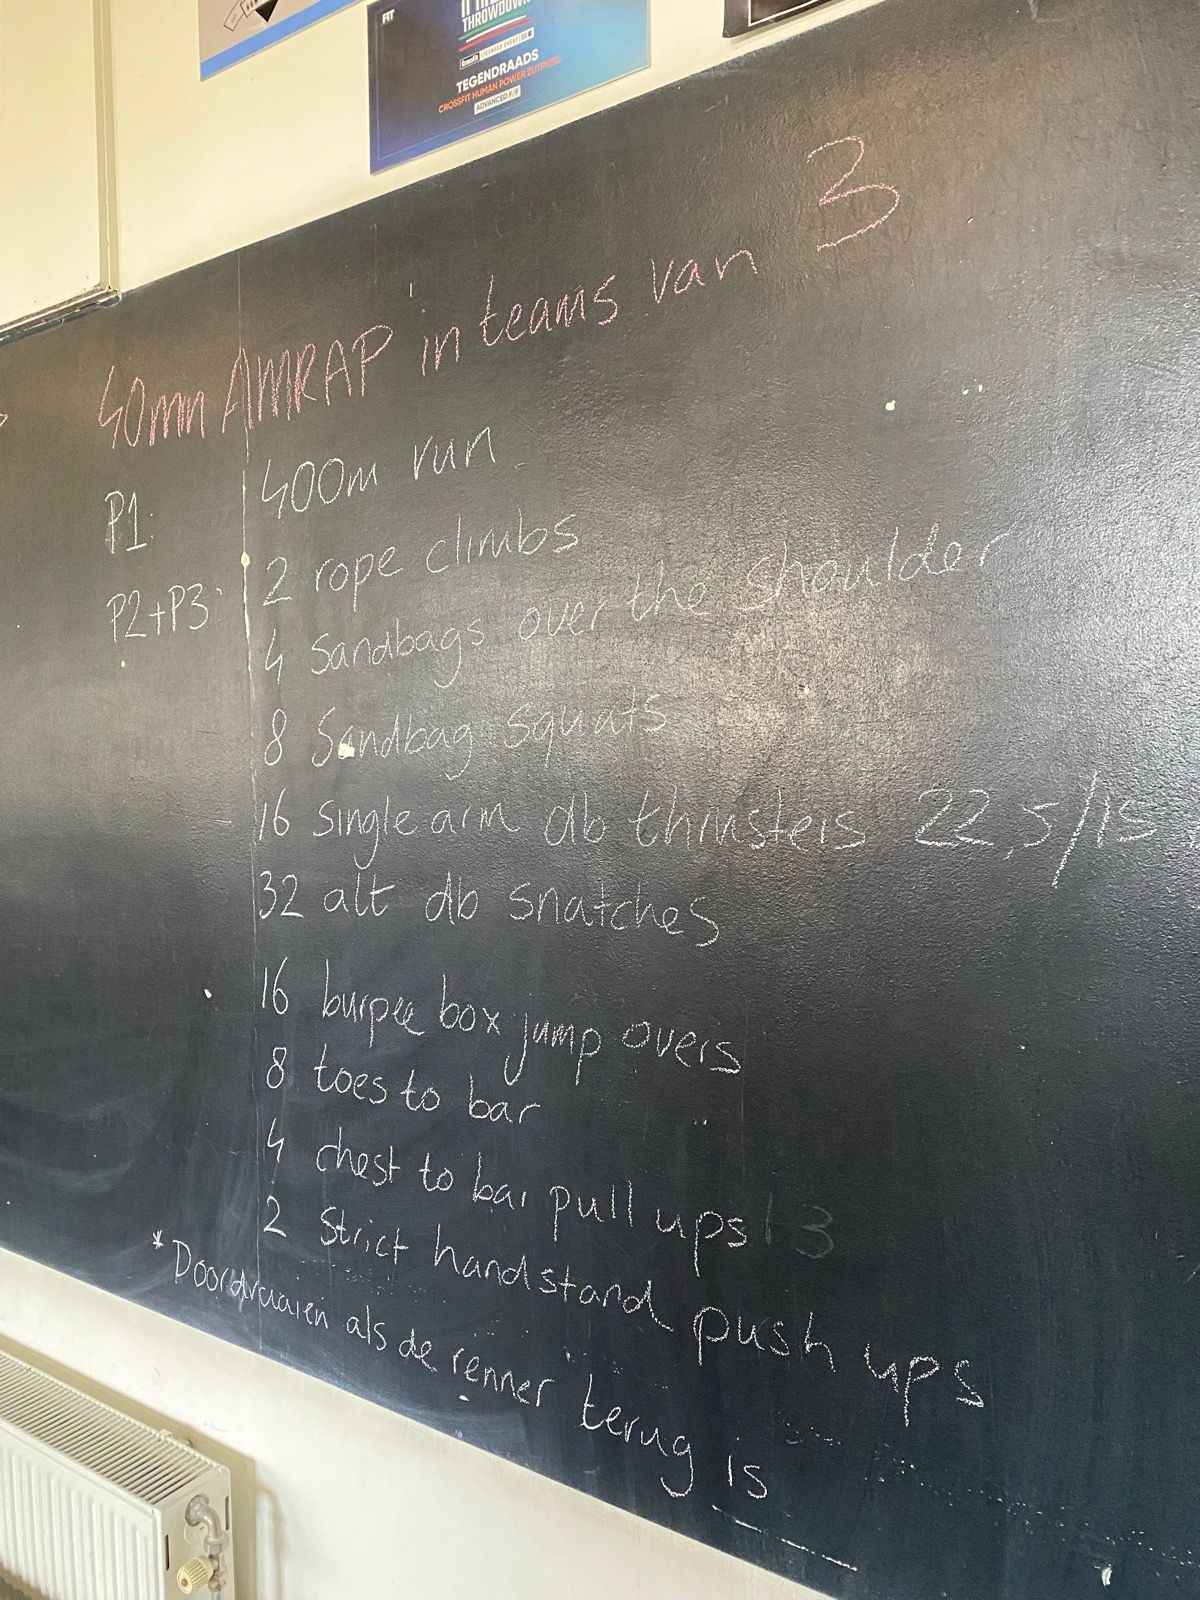 FIT
THROWDOWN
CrossFit LICENSED EVENT
TEGENDRAADS
CROSSFIT HUMAN POWER ZUTPHEN
ADVANCED F/F
40min AMRAP in teams van 3
P1: 400m run
P2+P3: 2 rope climbs
4 sandbags over the shoulder
8 Sandbag squats
16 single arm db thrusters 22,5/15
32 alt db snatches
16 burpee box jump overs
8 toes to bar
4 chest to bar pull ups
2 Strict handstand push ups
*Doordraaien als de renner terug is